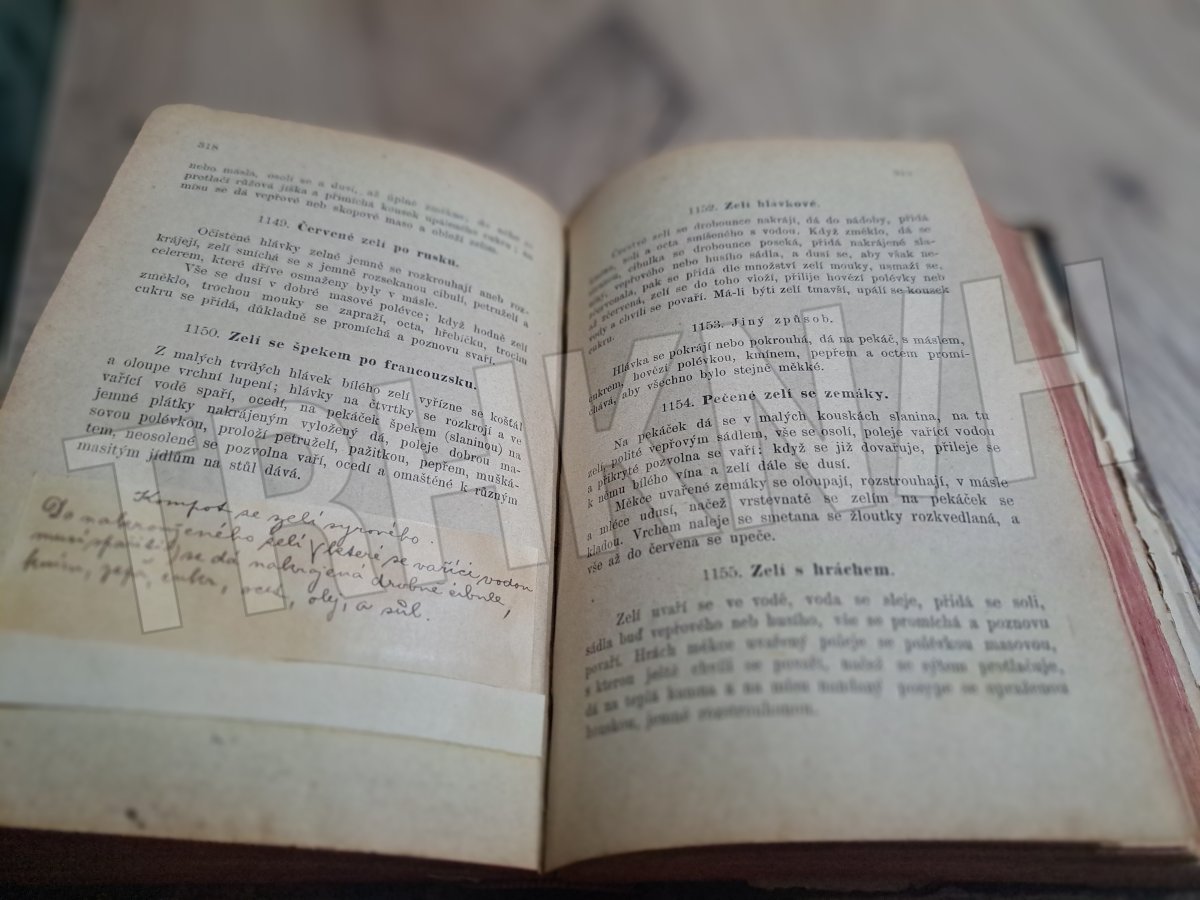 318
nebo másla, osolí se a dusí, až úplně změkne, do něho se
protlačí růžová jíška a přimíchá kousek upáleného cukru; na
mísu se dá vepřové neb skopové maso a obloží zelím.
1149. Červené zelí po rusku.
Očistěné hlávky zelné jemně se rozkrouhají aneb roz-
krájejí, zelí smíchá se s jemně rozsekanou cibulí, petruželí a
celerem, které dříve osmaženy byly v másle.
Vše se dusí v dobré masové polévce; když hodně zelí
změklo, trochou mouky se zapraží, octa, hřebíčku, trochu
cukru se přidá, důkladně se promíchá a poznovu svaří.
1150. Zelí se špekem po francouzsku.
Z malých tvrdých hlávek bílého zelí vyřízne se košťál
a oloupe vrchní lupení; hlávky na čtvrtky se rozkrojí a ve
vařící vodě spaří, ocedí, na pekáček špekem (slaninou) na
jemné plátky nakrájeným vyložený dá, poleje dobrou ma-
sovou polévkou, proloží petruželí, pažitkou, pepřem, mušká-
tem, neosolené se pozvolna vaří, ocedí a omaštěné k různým
masitým jídlům na stůl dává.
Kompot se zelí syrového.
Do nakrouženého zelí (které se vařící vodou
musí spařiti) se dá nakrájená drobně cibule,
kmín, cukr, ocet, olej, a sůl.
1152. Zelí hlávkové.
Čerstvé zelí se drobounce nakrájí, dá do nádoby, přidá
kmínu, soli a octa smíseného s vodou. Když změklo, dá se
cibulka se drobounce poseká, přidá nakrájené sla-
niny, vepřového nebo husího sádla, a dusí se, aby však ne-
zčervenala, pak se přidá dle množství zelí mouky, usmaží se,
až zčervená, zelí se do toho vloží, přilije hovězí polévky neb
vody a chvíli se povaří. Má-li býti zelí tmavší, upálí se kousek
cukru.
1153. Jiný způsob.
Hlávka se pokrájí nebo pokrouhá, dá na pekáč, s máslem,
cukrem, hovězí polévkou, kmínem, pepřem a octem promí-
chává, aby všechno bylo stejně měkké.
1154. Pečené zelí se zemáky.
Na pekáček dá se v malých kouskách slanina, na tu
zelí, polité vepřovým sádlem, vše se osolí, poleje vařící vodou
a přikryté pozvolna se vaří; když se již dovařuje, přileje se
k němu bílého vína a zelí dále se dusí.
Měkce uvařené zemáky se oloupají, rozstrouhají, v másle
a mléce udusí, načež vrstevnatě se zelím na pekáček se
kladou. Vrchem naleje se smetana se žloutky rozkvedlaná, a
vše až do červena se upeče.
1155. Zelí s hráchem.
Zelí uvaří se ve vodě, voda se sleje, přidá se soli,
sádla buď vepřového neb husího, vše se promíchá a poznovu
povaří. Hrách měkce uvařený poleje se polévkou masovou,
s kterou ještě chvíli se povaří, načež se sýtem protlačuje,
dá na teplá kamna a na mísu nandaný posype se upraženou
houskou, jemně rozstrouhanou.
TRHKNIH